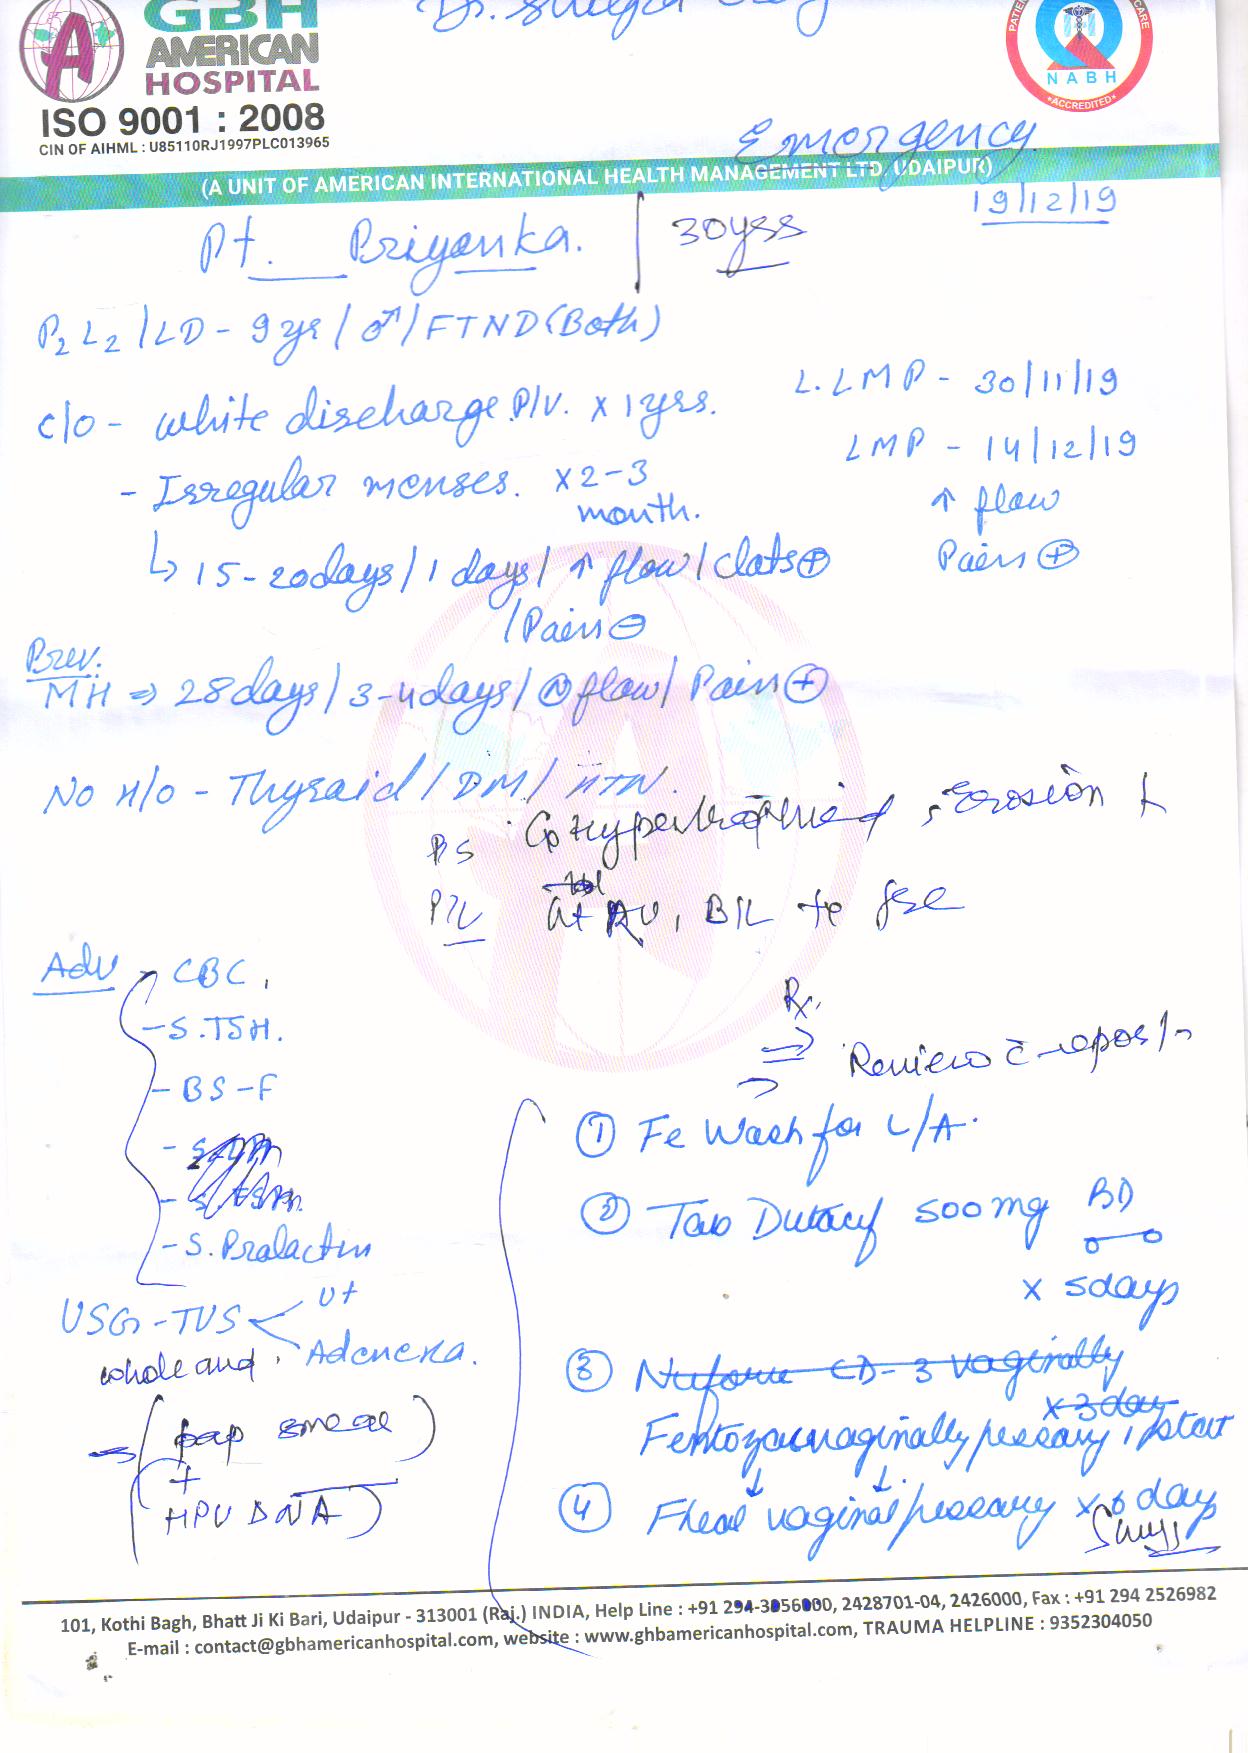 GBH
AMERICAN
HOSPITAL
ISO 9001 : 2008
CIN OF AIHML : U85110RJ1997PLC013965
Dr.
NABH
ACCREDITED
Emergency
(A UNIT OF AMERICAN INTERNATIONAL HEALTH MANAGEMENT LTD. UDAIPUR)
19/12/19
Pt. Priyanka. | 30yrs
P2 L2 / LD - 9 yr / ♂ / FTND (Both)
L. LMP - 30/11/19
c/o - white discharge P/V. x 1 yrs.
LMP - 14/12/19
- Irregular menses. x 2-3 month.
↑ flow
Pain ⊕
↳ 15-20 days / 1 days / ↑ flow / Clots ⊕
/ Pain ⊖
Prev.
MH ⇒ 28 days / 3-4 days / Ⓝ flow / Pain ⊕
No H/O - Thyroid / DM / HTN.
P/S Cx Hypertrophied, Erosion +
P/V Ut AV, B/L fx free
Adv - CBC,
- S.TSH.
- BS-F
- S. Prolactin
USG - TVS < ut
Adenexa.
whole and
→ (pap smear
+
HPV DNA)
Rx.
⇒ Review c̄ reports
① Fe Wash for L/A.
② Tab 500mg BD
x 5 days
③ CD-3 vaginally
x 3 day
vaginally pessary 1 stat
④ vaginal pessary x 6 days
101, Kothi Bagh, Bhatt Ji Ki Bari, Udaipur - 313001 (Raj.) INDIA, Help Line : +91 294-3056000, 2428701-04, 2426000, Fax : +91 294 2526982
E-mail : contact@gbhamericanhospital.com, website : www.ghbamericanhospital.com, TRAUMA HELPLINE : 9352304050